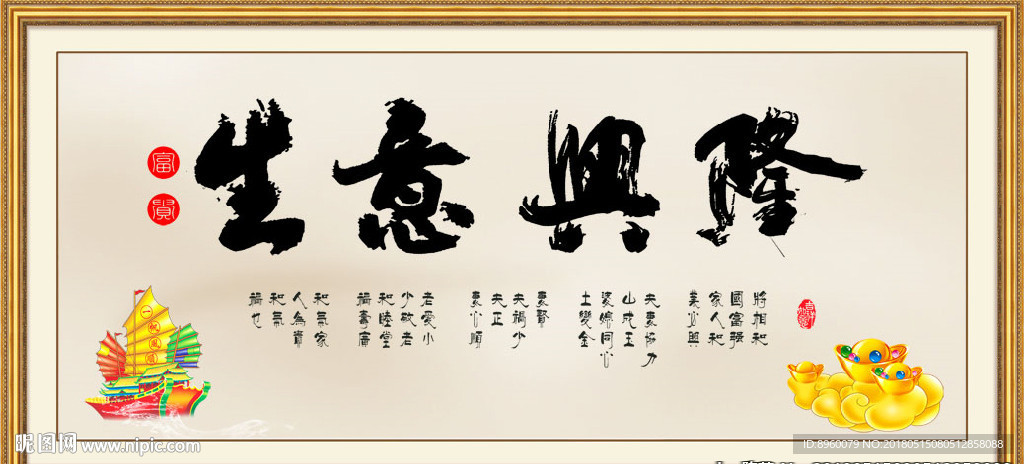 生意興隆
富貴
將相和
國富强
家人和
業必興
夫妻協力
山成玉
婆媳同心
土變金
妻賢
夫禍少
夫正
妻必順
老愛小
少敬老
和陸堂
福壽廣
和氣家
人為貴
和氣
福也
一帆風順
昵图网 www.nipic.com
ID:8960079 NO:20180515080512858088